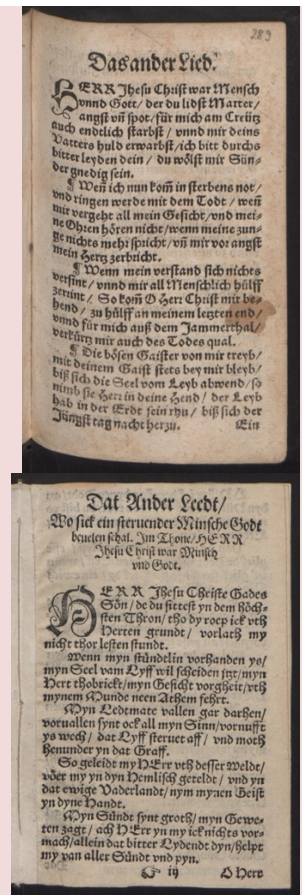 289
Das ander Lied.
HERR Jhesu Christ war Mensch
vnnd Gott / der du lidst Marter /
angst vñ spot / für mich am Creütz
auch endtlich starbst / vnnd mir deins
Vatters huld erwarbst / ich bitt durchs
bitter leyden dein / du wölst mir Sün-
der gnedig sein.
¶ Weñ ich nun kom̃ in sterbens not /
vnd ringen werde mit dem Todt / weñ
mir vergeht all mein Gesicht / vnd mei-
ne Ohren hören nicht / wenn meine zun-
ge nichts mehr spricht / vñ mir vor angst
mein Hertz zerbricht.
¶ Wenn mein verstand sich nichts
versint / vnnd mir all Menschlich hülff
zerrint / So kom̃ O Herr Christ mir be-
hend / zu hülff an meinem letzten end /
vnnd für mich auß dem Jammerthal /
verkürtz mir auch des Todes qual.
¶ Die bösen Gaister von mir treyb /
mit deinem Gaist stets bey mir bleyb /
biß sich die Seel vom Leyb abwend / so
nimb sie Herr in deine Hend / der Leyb
hab in der Erdt sein rhu / biß sich der
Jüngst tag nacht herzu. Ein
Dat Ander Leedt /
Wo sick ein steruender Minsche Godt
beuelen schal. Jm Thone / HERR
Jhesu Christ war Minsch
vnd Godt.
HERR Jhesu Christe Gades
Sön / de du sittest yn dem höch-
sten Thron / tho dy roep ick vth
Herten grundt / vorlath my
nicht thor lesten stundt.
Wenn myn stündtlin vorhanden ys /
myn Seel vam Lyff wil scheiden jtzt / myn
Hert thobrickt / myn Gesicht vorgheit / vth
mynem Munde neen Athem fehrt.
Myn Ledtmate vallen gar darhen /
voruallen synt ock all myn Sinn / vornufft
ys wech / dat Lyff steruet aff / vnd moth
henunder yn dat Graff.
So geleidt my HErr vth desser Weldt /
vöer my yn dyn Hemlisch geteldt / vnd yn
dat ewige Vaderlandt / nym mynen Geist
yn dyne Handt.
Myn Sündt synt groth / myn Gewe-
ten zagt / ach HErr yn my ick nichts vor-
mach / allein dat bitter Lydendt dyn / helpt
my van aller Sündt vnd pyn.
iij O Herr